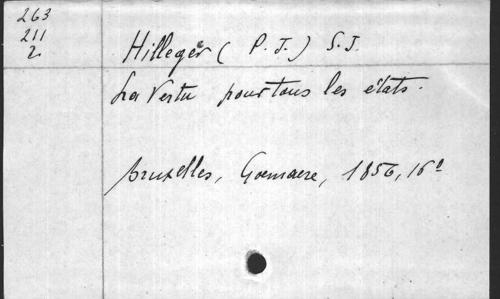 263
211
2
Hillegeer (P. J.) S.J.
La Vertu pour tous les états.
Bruxelles, Goemaere, 1856, 16º